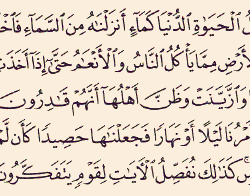 ٱلْحَيَوٰةِ ٱلدُّنْيَا كَمَآءٍ أَنزَلْنَٰهُ مِنَ ٱلسَّمَآءِ
مِمَّا يَأْكُلُ ٱلنَّاسُ وَٱلْأَنْعَٰمُ حَتَّىٰٓ إِذَآ
وَٱزَّيَّنَتْ وَظَنَّ أَهْلُهَآ أَنَّهُمْ قَٰدِرُونَ
لَيْلًا أَوْ نَهَارًا فَجَعَلْنَٰهَا حَصِيدًا كَأَن
كَذَٰلِكَ نُفَصِّلُ ٱلْءَايَٰتِ لِقَوْمٍ يَتَفَكَّرُونَ